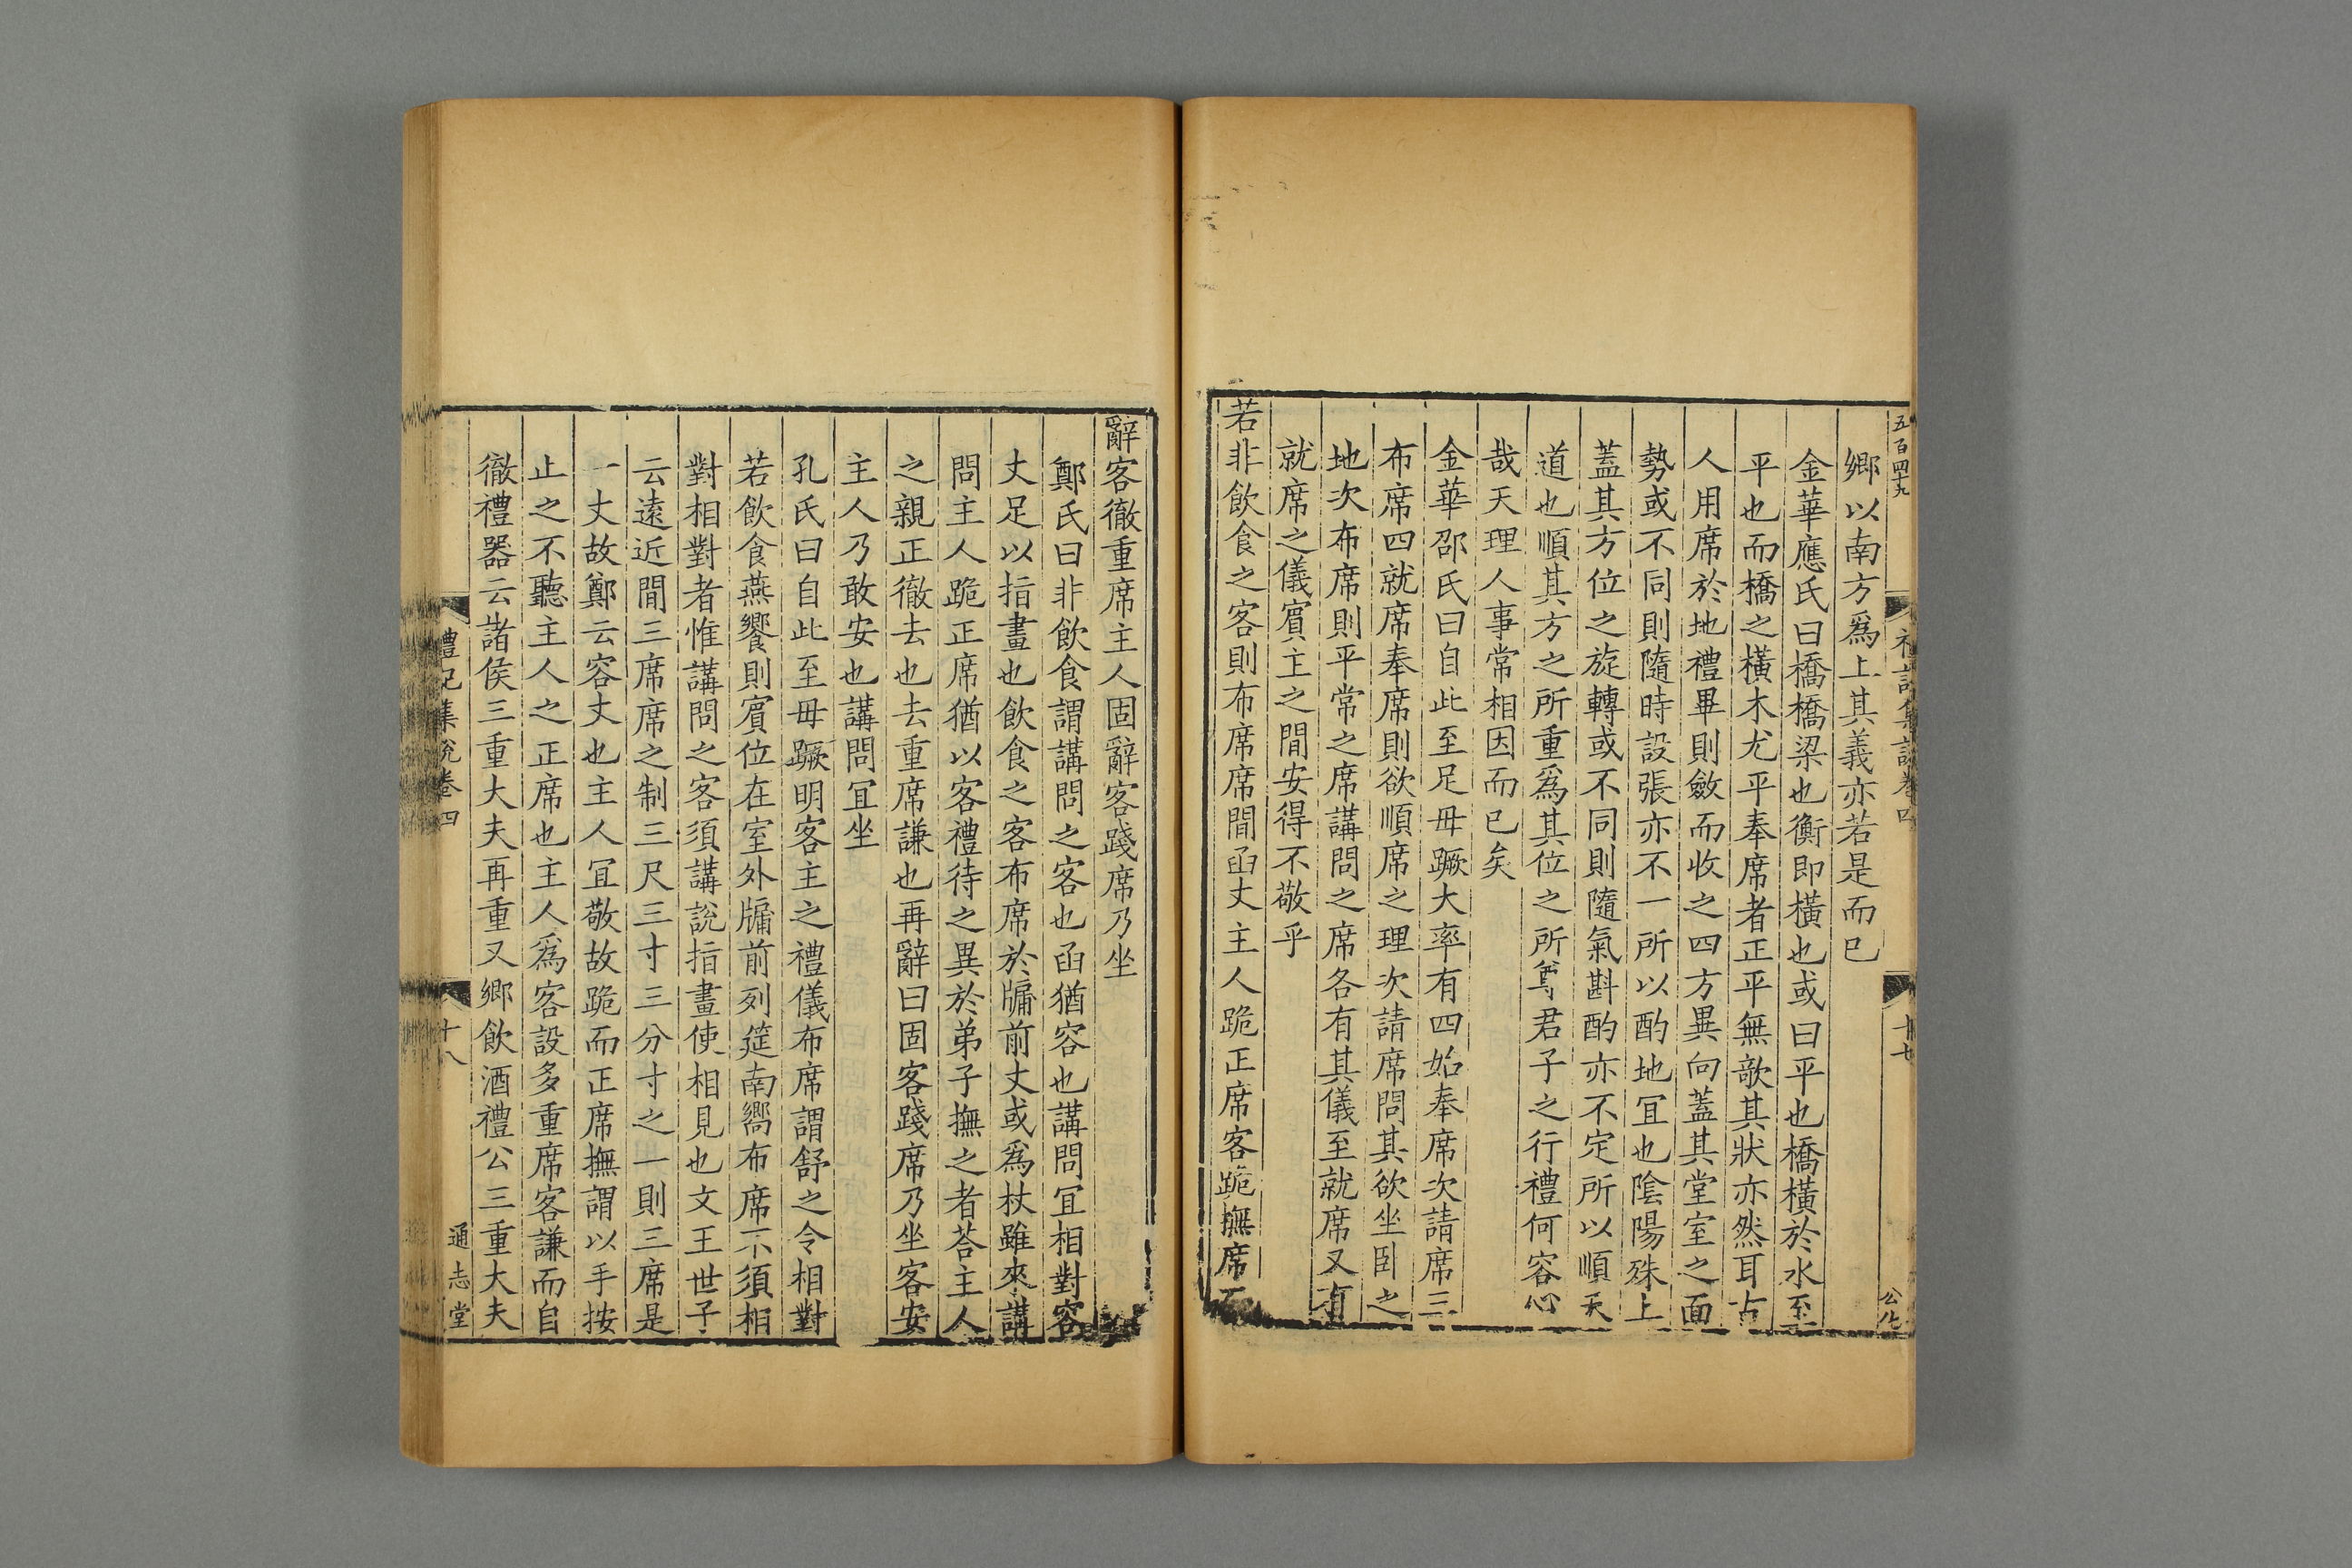 五百四十九
鄉以南方爲上其義亦若是而已
金華應氏曰橋橋梁也衡即橫也或曰平也橋橫於水至
平也而橋之橫木尤平奉席者正平無欹其狀亦然耳古
人用席於地禮畢則斂而收之四方異向蓋其堂室之面
勢或不同則隨時設張亦不一所以酌地冝也陰陽殊上
蓋其方位之旋轉或不同則隨氣斟酌亦不定所以順天
道也順其方之所重爲其位之所尊君子之行禮何容心
哉天理人事常相因而已矣
金華邵氏曰自此至足毋蹶大率有四始奉席次請席三
布席四就席奉席則欲順席之理次請席問其欲坐臥之
地次布席則平常之席講問之席各有其儀至就席又有
就席之儀賓主之間安得不敬乎
若非飲食之客則布席席間函丈主人跪正席客跪撫席而
辭客徹重席主人固辭客踐席乃坐
鄭氏曰非飲食謂講問之客也函猶容也講問冝相對容
丈足以指畫也飲食之客布席於牖前丈或爲杖雖來講
問主人跪正席猶以客禮待之異於弟子撫之者荅主人
之親正徹去也去重席謙也再辭曰固客踐席乃坐客安
主人乃敢安也講問冝坐
孔氏曰自此至毋蹶明客主之禮儀布席謂舒之令相對
若飲食燕饗則賓位在室外牖前列筵南嚮布席不須相
對相對者惟講問之客須講說指畫使相見也文王世子
云遠近間三席席之制三尺三寸三分寸之一則三席是
一丈故鄭云容丈也主人冝敬故跪而正席撫謂以手按
止之不聽主人之正席也主人爲客設多重席客謙而自
徹禮器云諸侯三重大夫再重又鄉飲酒禮公三重大夫
禮記集說卷四
十八
通志堂